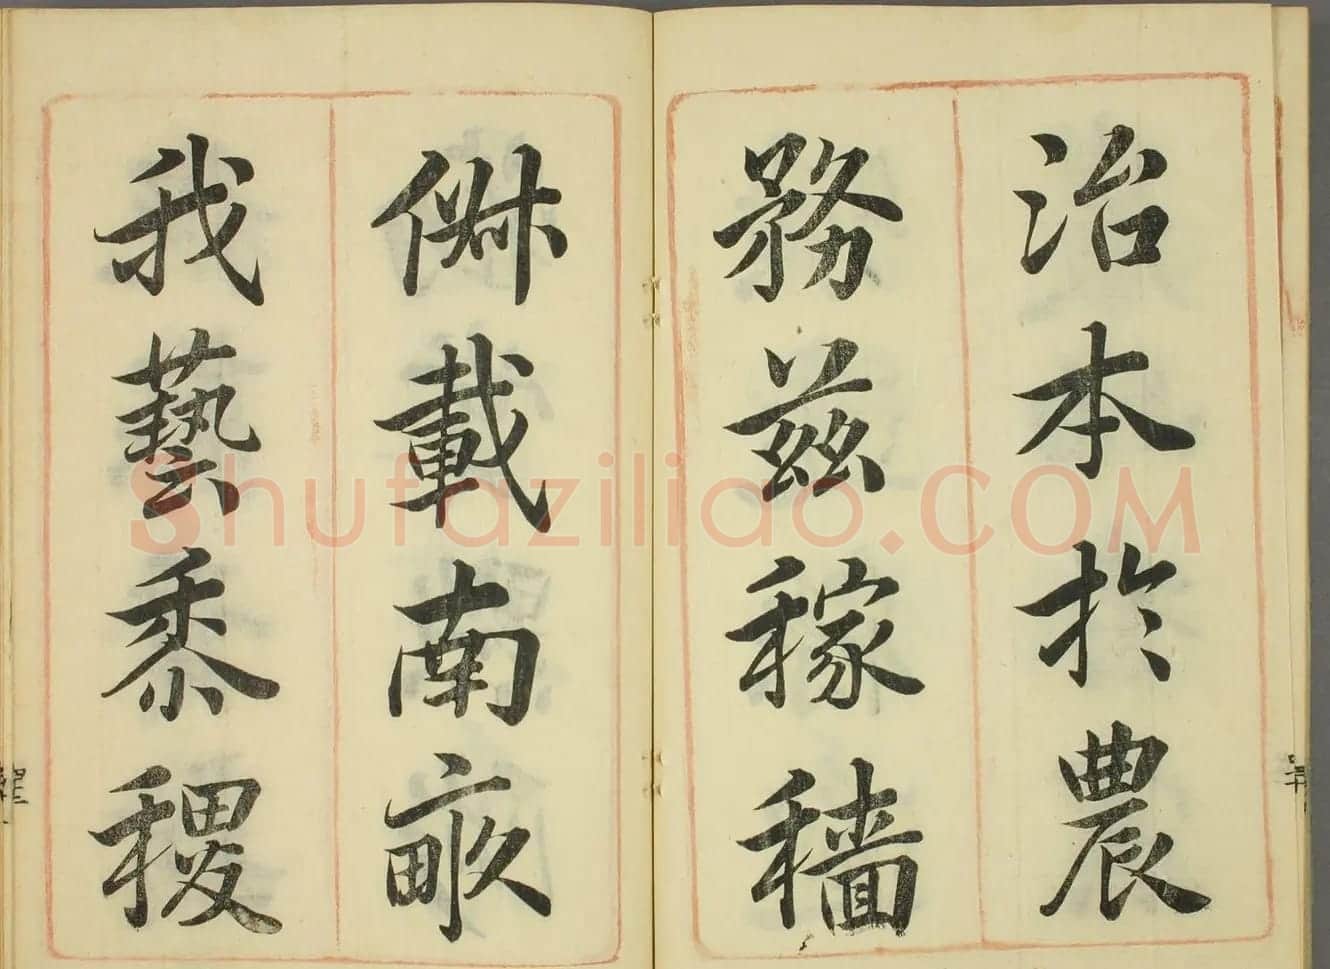 治本於農
務茲稼穡
俶載南畝
我藝黍稷
Shufaziliao.COM